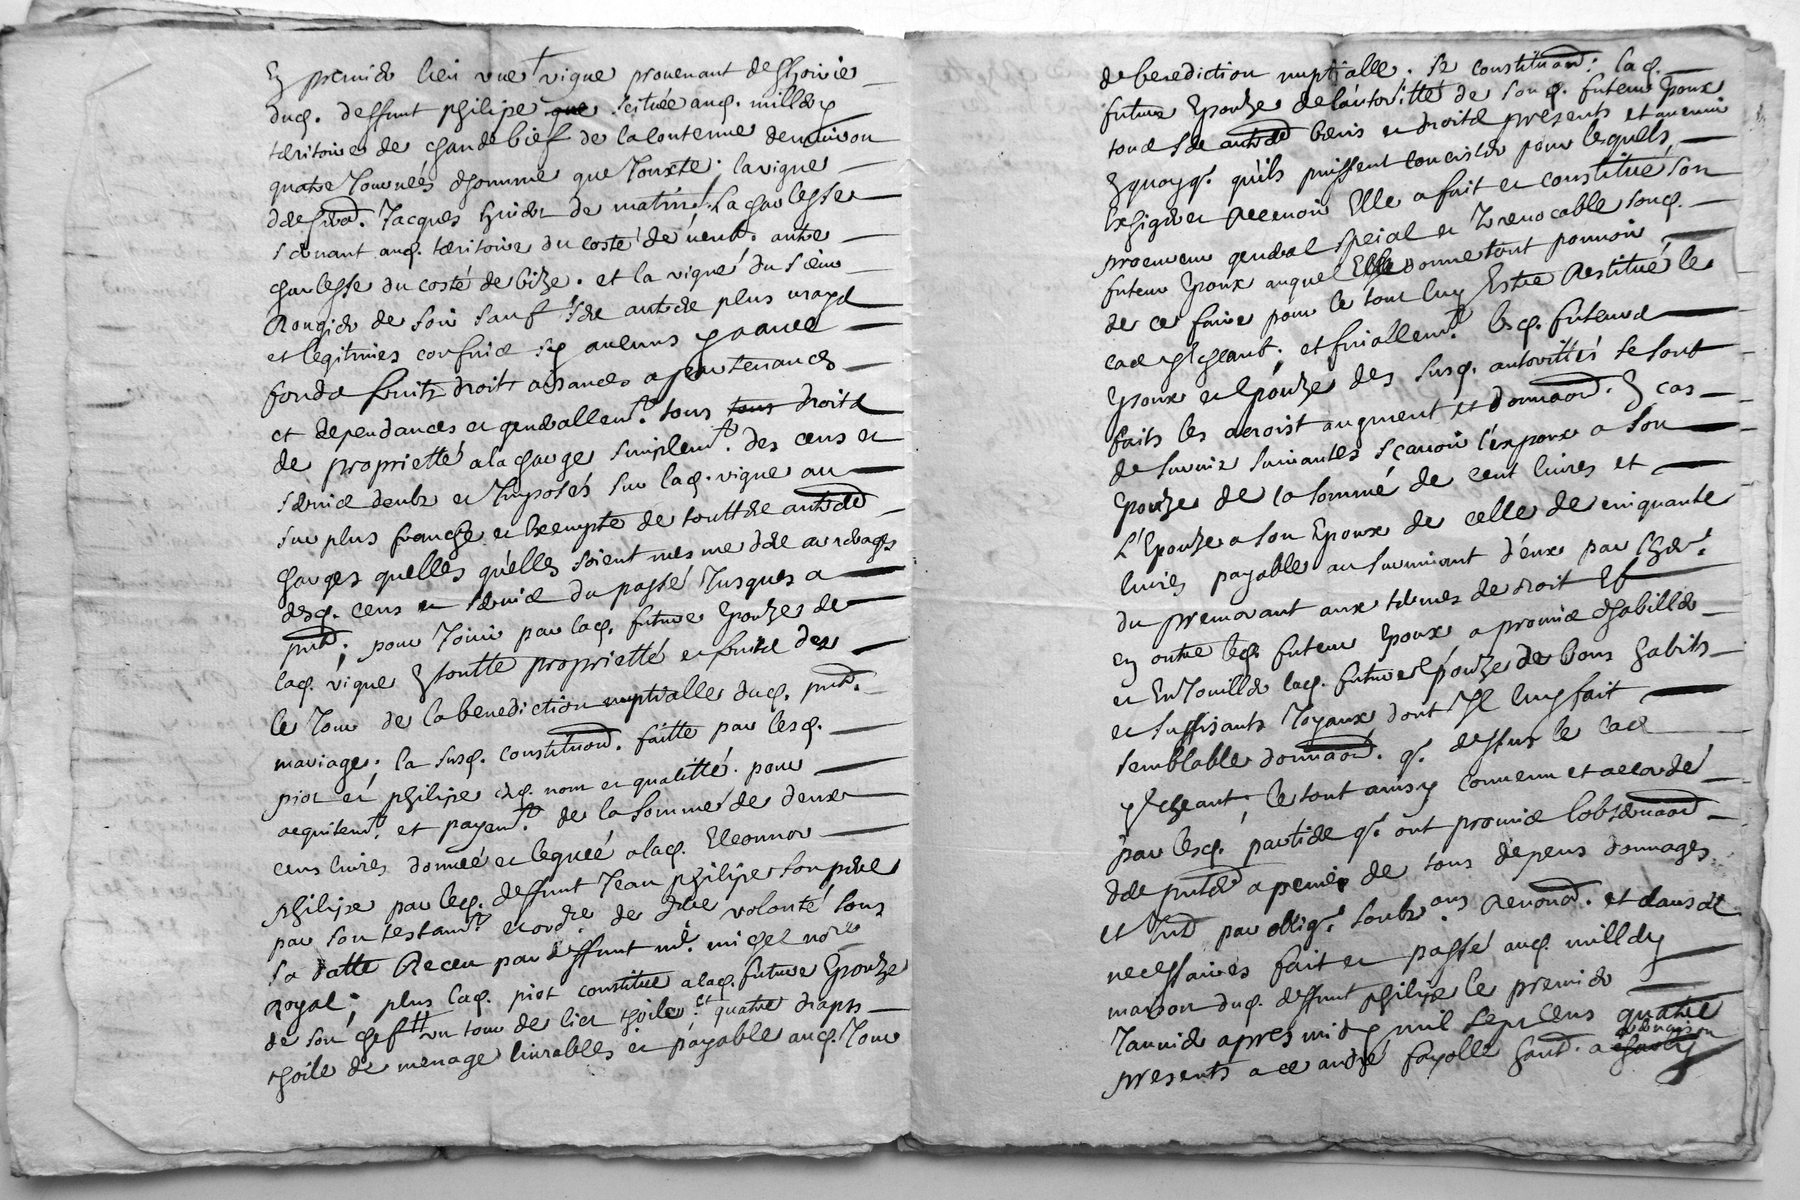 En premier lieu une vigne provenant de l'hoirie
dud. deffunt philipe scituée aud. milléry
téritoire de chandebief de la contenue denviron
quatre Journéés dhomme que Jouxte; la vigne
Jacques de matin; La charlesse
servant aud. téritoire du costé de vent. autre
charlesse du costé de bize. et la vigne du sieur
Rougier de soir sauf ses autres plus vrays
et legitimes confins sy aucuns y a avec
fonds fruits droits aisances apartenances
et dépendances et generallemt. tous tous droits
de proprietté a la charge simplemt. des cens et
servis deubs et Imposés sur lad. vigne au
surplus franche et Exempte de touttes autres
charges quelles qu'elles soient mesme des arrérages
desd. cens et servis du passé Jusques a
pnt; pour Jouir par lad. future Epouze de
lad. vigne En toutte proprietté et fruits des
le Jour de la benediction nuptialle dud. pnt.
mariage; la susd. constituon. faitte par lesd.
piot et philipe esd. nom et qualitté pour
acquitemt. et payemt. de la somme de deux
cens livres donnéé et leguéé a lad. Eleonnor
philipe par led. deffunt Jean philipe son pere
par son testamt. et ordre de dre volonté sous
sa datte Receu par deffunt me. michel nore
Royal; plus lad. piot constitue a lad. future Epouze
de son chef un tour de lict thoile et quatre draps
thoile de menage livrables et payable aud. Jour
de benediction nuptialle. Se constituant: lad.
future Epouze de l'autoritté de sond. futeur Epoux
tous ses autres biens et droits présents et avenir
En quoy q. qu'ils puissent concister pour lesquels
Exhiger et Recevoir Elle a fait et constitué son
procureur general special et Irrevocable sond.
futeur Epoux auquel Elle donne tout pouvoir
de ce faire pour le tout luy Estre Restitué le
cas Echeant; et finallemt. lesd. futeurs
Epoux et Epouze des susd. autorittés se sont
faits les acroist augment et donnaon. En cas
de survie suivantes sçavoir l'expoux a son
Epouze de la somme de cent livres et
L'Epouze a son Epoux de celle de cinquante
livres payable au survivant d'eux par l'her.
du premourant aux termes de droit Et
En outre led. futeur Epoux a promis dhabiller
et EnJoueiller lad. future Epouze de bons habits
et suffisants Joyaux dont Il luy fait
semblable donnaon. q. dessus le cas
y Echeant; le tout ainsy convenu et acordé
par lesd. parties q. ont promis l'observaon
des pntes a peine de tous dépens dommages
et Int par obligé. soubz ons Renond. et clauses
necessaires fait et passé aud. milléry
maison dud. deffunt philipe le premier
Janvier apres midy mil sept cens quatre
presents a ce andré fayolle